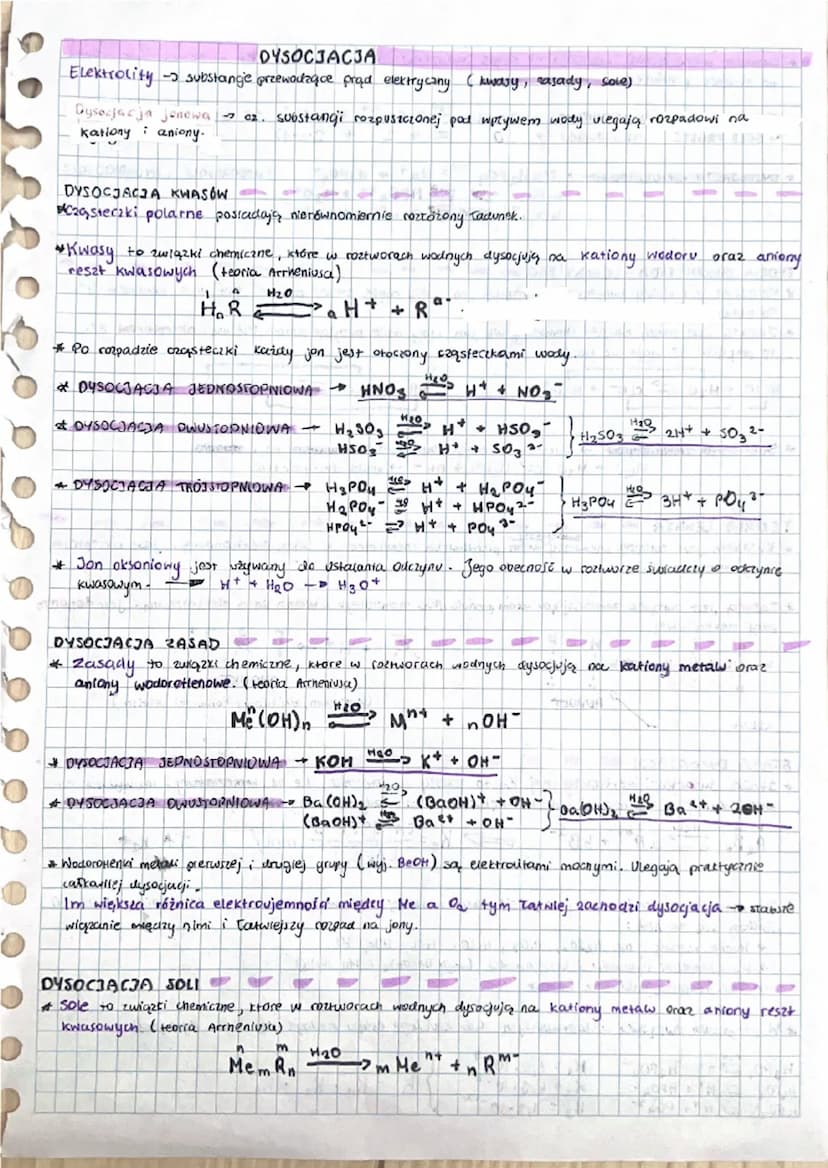 DYSOCJACJA
Elektrolity → substancje przewodzące prąd elektryczny (kwasy, zasady, sole)
Dysocjacja jonowa → cz. substancji rozpuszczonej pod wpływem wody ulegają rozpadowi na
kationy i aniony.
DYSOCJACJA KWASÓW
*Cząsteczki polarne posiadają nierównomiernie rozłożony ładunek.
*Kwasy to związki chemiczne, które w roztworach wodnych dysocjują na kationy wodoru oraz aniony
reszt kwasowych (teoria Arrheniusa)
HₐR ⇌ (H₂O) aH⁺ + Rᵃ⁻
* Po rozpadzie cząsteczki każdy jon jest otoczony cząsteczkami wody.
* DYSOCJACJA JEDNOSTOPNIOWA → HNO₃ ⇌ (H₂O) H⁺ + NO₃⁻
* DYSOCJACJA DWUSTOPNIOWA → H₂SO₃ ⇌ (H₂O) H⁺ + HSO₃⁻ } H₂SO₃ ⇌ (H₂O) 2H⁺ + SO₃²⁻
HSO₃⁻ ⇌ (H₂O) H⁺ + SO₃²⁻
* DYSOCJACJA TRÓJSTOPNIOWA → H₃PO₄ ⇌ (H₂O) H⁺ + H₂PO₄⁻ } H₃PO₄ ⇌ (H₂O) 3H⁺ + PO₄³⁻
H₂PO₄⁻ ⇌ (H₂O) H⁺ + HPO₄²⁻
HPO₄²⁻ ⇌ H⁺ + PO₄³⁻
* Jon oksoniowy jest używany do ustalania odczynu. Jego obecność w roztworze świadczy o odczynie
kwasowym. → H⁺ + H₂O → H₃O⁺
DYSOCJACJA ZASAD
* Zasady to związki chemiczne, które w roztworach wodnych dysocjują na kationy metalu oraz
aniony wodorotlenowe. (teoria Arrheniusa)
Me(OH)ₙ ⇌ (H₂O) Mⁿ⁺ + nOH⁻
* DYSOCJACJA JEDNOSTOPNIOWA → KOH ⇌ (H₂O) K⁺ + OH⁻
* DYSOCJACJA DWUSTOPNIOWA → Ba(OH)₂ ⇌ (H₂O) (BaOH)⁺ + OH⁻ } Ba(OH)₂ ⇌ (H₂O) Ba²⁺ + 2OH⁻
(BaOH)⁺ ⇌ (H₂O) Ba²⁺ + OH⁻
* Wodorotlenki metali pierwszej i drugiej grupy (wyj. BeOH) są elektrolitami mocnymi. Ulegają praktycznie
całkowitej dysocjacji.
Im większa różnica elektroujemności między Me a O₂ tym łatwiej zachodzi dysocjacja → słabsze
wiązanie między nimi i łatwiejszy rozpad na jony.
DYSOCJACJA SOLI
* Sole to związki chemiczne, które w roztworach wodnych dysocjują na kationy metalu oraz aniony reszt
kwasowych. (teoria Arrheniusa)
MeₘRₙ → (H₂O) mMeⁿ⁺ + nRᵐ⁻